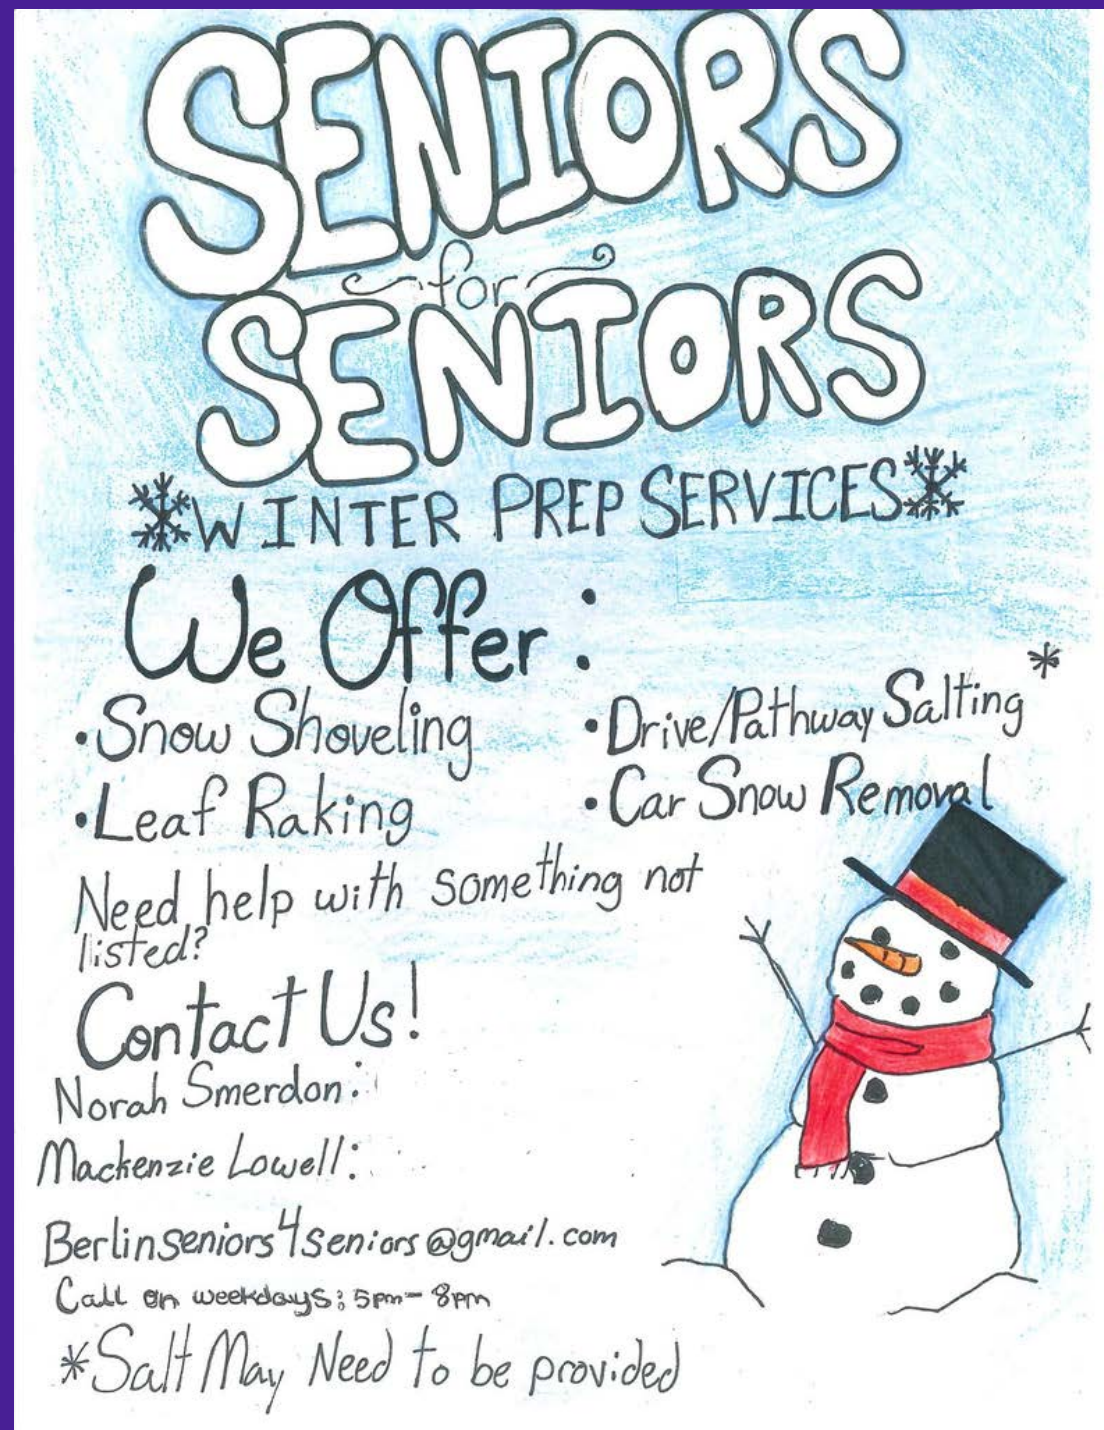 SENIORS
for
SENIORS
WINTER PREP SERVICES
We Offer:
• Snow Shoveling
• Leaf Raking
• Drive/Pathway Salting*
• Car Snow Removal
Need help with something not
listed?
Contact Us!
Norah Smerdon:
Mackenzie Lowell:
Berlinseniors4seniors@gmail.com
Call on weekdays: 5pm- 8pm
*Salt May Need to be provided